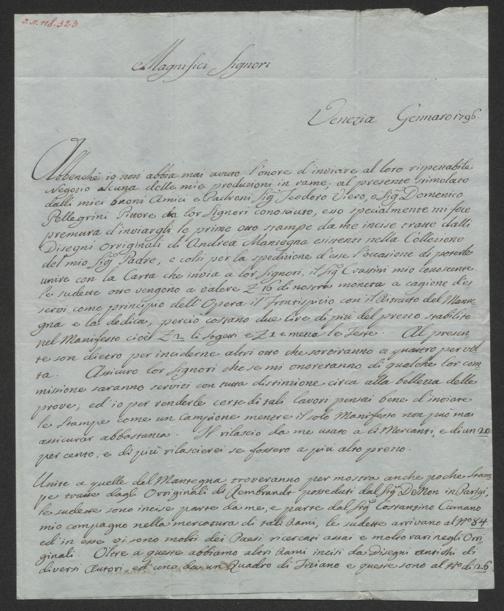 Magnifici Signori
Venezia Gennaro 1796
Abbenchè io non abbia mai avuto l'onore d'inviare al loro rispettabile
Negozio alcuna delle mie produzioni in rame, al presente stimolato
dalli miei buoni Amici e Padroni Sig. Teodoro Viero, e Sig. Domenico
Pellegrini Pittore da lor Signori conosciuto, e so specialmente mi fece
premura d'inviargli le prime otto stampe da me incise tratte dalli
Disegni Originali di Andrea Mantegna esistenti nella Collezione
del mio Sig. Padre, e colsi per la spedizione d'esse l'occasione di poterle
unire con la Carta che invia a lor Signori, il Sig. Cassini mio conoscente
le sudette otto vengono a valere £ 16 di nostra moneta a cagione d'es-
servi come principio dell'Opera il Frontispicio con il Ritratto del Mante-
gna e la dedica, perciò costano due lire di più del prezzo stabilito
nel Manifesto cioè £ 2 li Seguri e £ 1 e meza le Teste. Al presen-
te son dietro per inciderne altri otto che sortiranno a quattro per vol-
ta. Assicuro lor Signori che se mi onoreranno di qualche lor com-
missione saranno serviti con tutta distinzione circa alla bellezza delle
prove, ed io per renderle certe di tali lavori pensai bene d'inviare
le stampe come un Campione mentre il solo Manifesto non può mai
assicurar abbastanza. Il rilascio da me usato a li Mercanti, e di un 20
per cento, e di più rilascierei se fossero a più alto prezzo.
Unite a quelle del Mantegna troveranno per mostra anche poche stam-
pe tratte dagli Originali di Rembrandt posseduti dal Sig. DeNon in Parigi,
le sudette sono incise parte da me, e parte dal Sig. Costantino Cumano
mio compagno nella mercatura di tali Rami, le sudette arrivano al N.º 84
ed in esse vi sono molti dei Pezzi ricercati assai e molto rari negli Ori-
ginali. Oltre a queste abbiamo altri Rami incisi da disegni antichi di
diversi Autori, ed uno da un Quadro di Tiziano e queste sono al N.º di 26